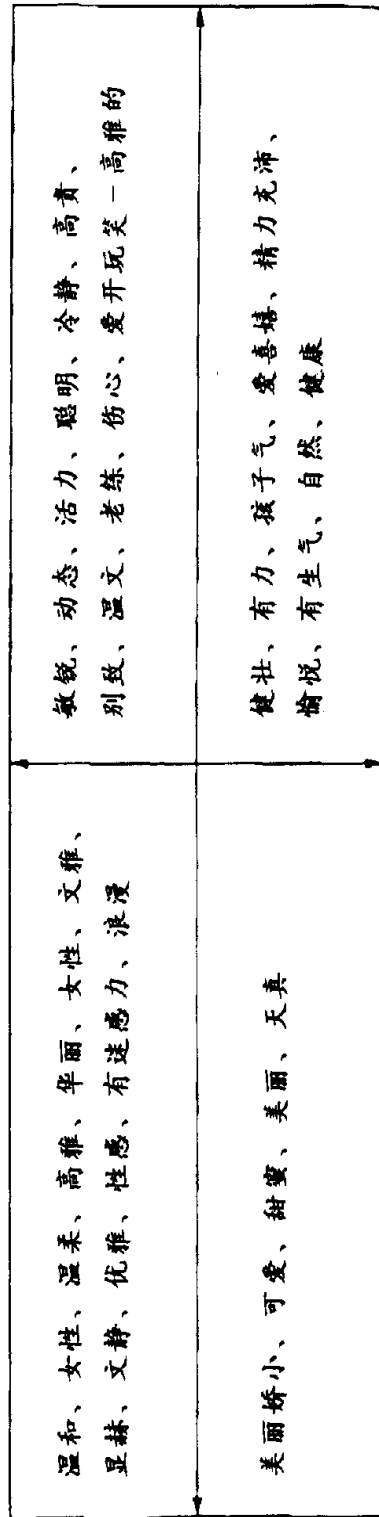 温和、女性、温柔、高雅、华丽、女性、文雅、
显赫、文静、优雅、性感、有迷感力、浪漫
敏锐、动态、活力、聪明、冷静、高贵、
别致、温文、老练、伤心、爱开玩笑－高雅的
美丽娇小、可爱、甜蜜、美丽、天真
健壮、有力、孩子气、爱喜嬉、精力充沛、
愉悦、有生气、自然、健康